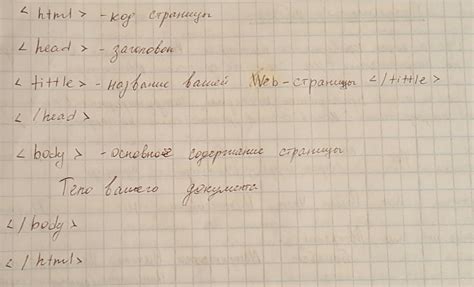 <html> - код страницы
<head> - заголовок
<tittle> - название вашей Web-страницы </tittle>
</head>
<body> - основное содержание страницы
Тело вашего документа
</body>
</html>